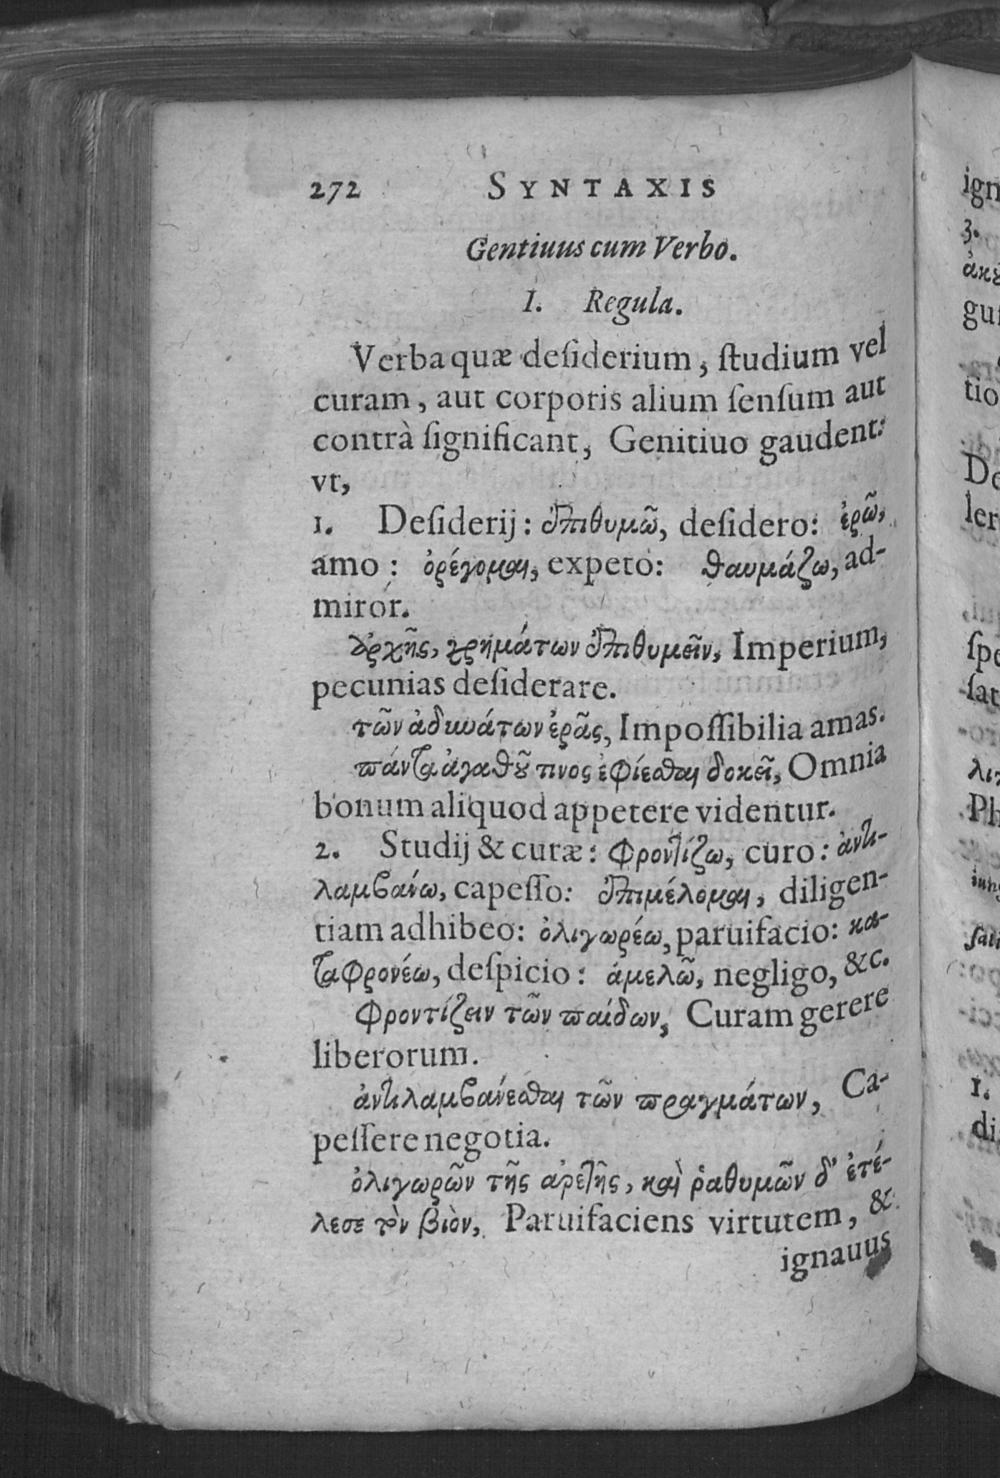 272 SYNTAXIS
Gentiuus cum Verbo.
I. Regula.
Verba quæ deſiderium, ſtudium vel
curam, aut corporis alium ſenſum aut
contrà ſignificant, Genitiuo gaudent:
vt,
1. Deſiderij: ἐπιθυμῶ, deſidero: ἐρῶ,
amo: ὀρέγομαι, expeto: θαυμάζω, ad-
miror.
ἀρχῆς, χρημάτων ἐπιθυμεῖν, Imperium,
pecunias deſiderare.
τῶν ἀδυνάτων ἐρᾶς, Impoſſibilia amas.
πάντα ἀγαθοῦ τινος ἐφίεσθαι δοκεῖ, Omnia
bonum aliquod appetere videntur.
2. Studij & curæ: φροντίζω, curo: ἀντι-
λαμβανω, capeſſo: ἐπιμέλομαι, diligen-
tiam adhibeo: ὀλιγωρέω, paruifacio: κα-
ταφρονέω, deſpicio: ἀμελῶ, negligo, &c.
φροντίζειν τῶν παίδων, Curam gerere
liberorum.
ἀντιλαμβανέσθαι τῶν πραγμάτων, Ca-
peſſere negotia.
ὀλιγωρῶν τῆς ἀρετῆς, καὶ ῥαθυμῶν δ' ἐτέ-
λεσε τὸν βιὸν, Paruifaciens virtutem, &
ignauus
ign
3.
ἀκȣ
guſ
tio
De
ler
ſpe
ſat
λιπ
Ph
1.
di